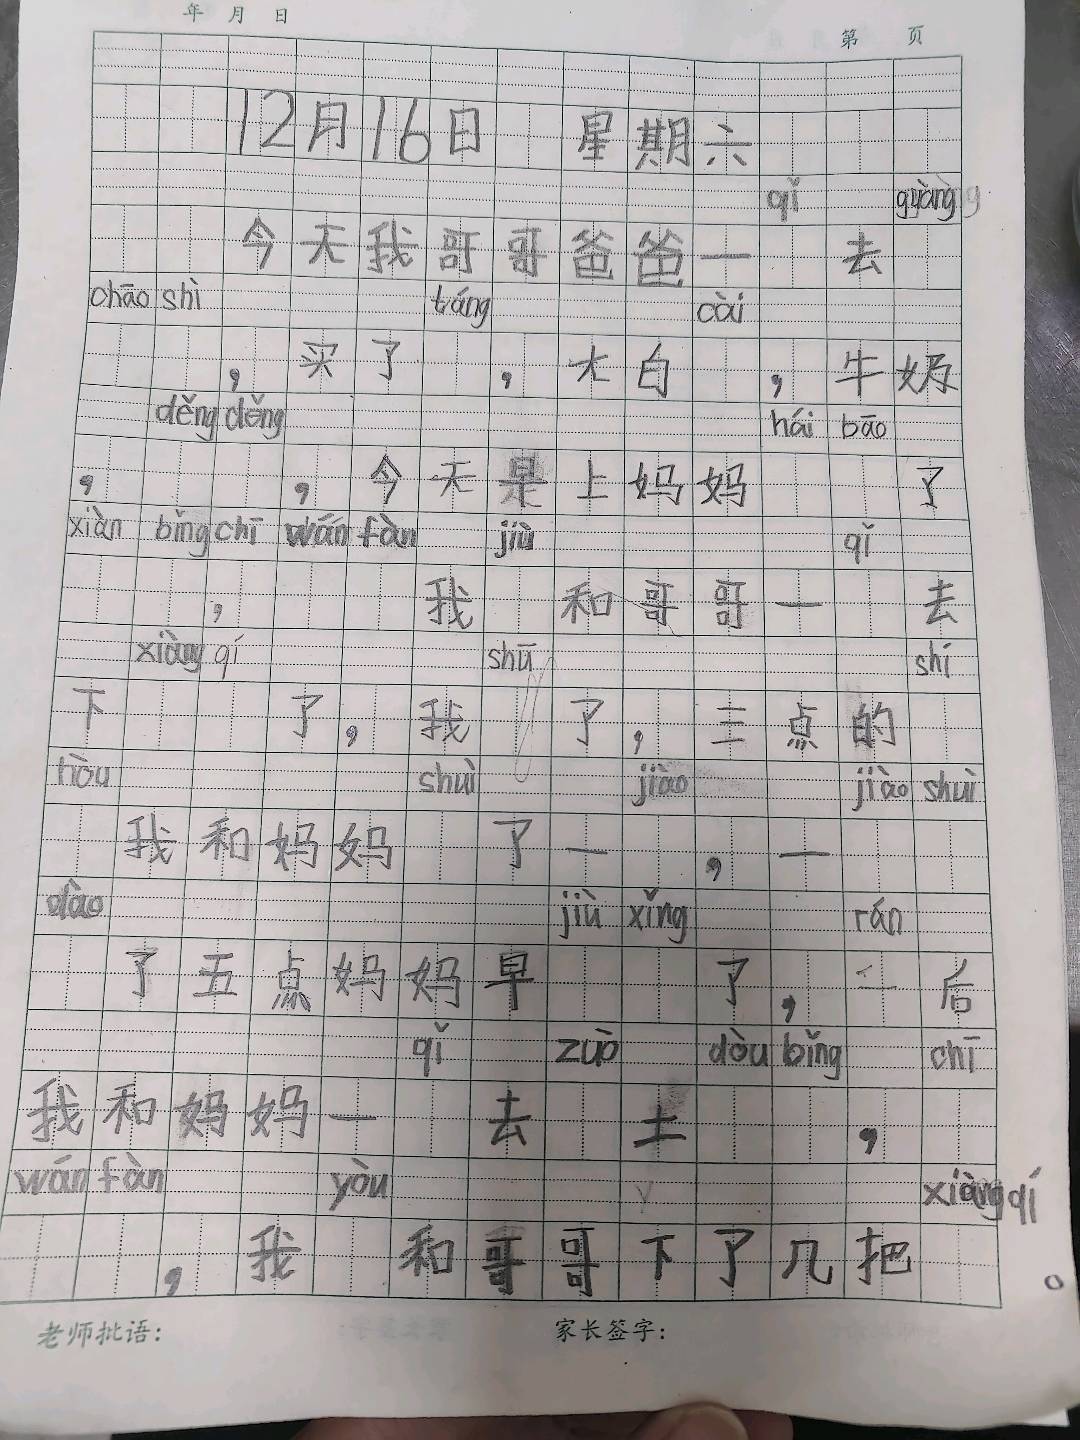 年 月 日
第 页
12月16日 星期六
qǐ guàng
今天我哥哥爸爸一 去
chāo shì táng cài
，买了 ，大白 ，牛奶
děng děng hái bāo
， ，今天是上妈妈 了
xiàn bǐng chī wán fàn jiù qǐ
， 我 和哥哥一 去
xiàng qí shū shí
下 了，我 了，三点的
hòu shuì jiào jiào shuì
我和妈妈 了一 ，一
dào jiù xǐng rán
了五点妈妈早 了， 后
qǐ zuò dòu bǐng chī
我和妈妈一 去 土 ，
wán fàn yòu xiàng qí
， 我 和哥哥下了几把 。
老师批语： 家长签字：